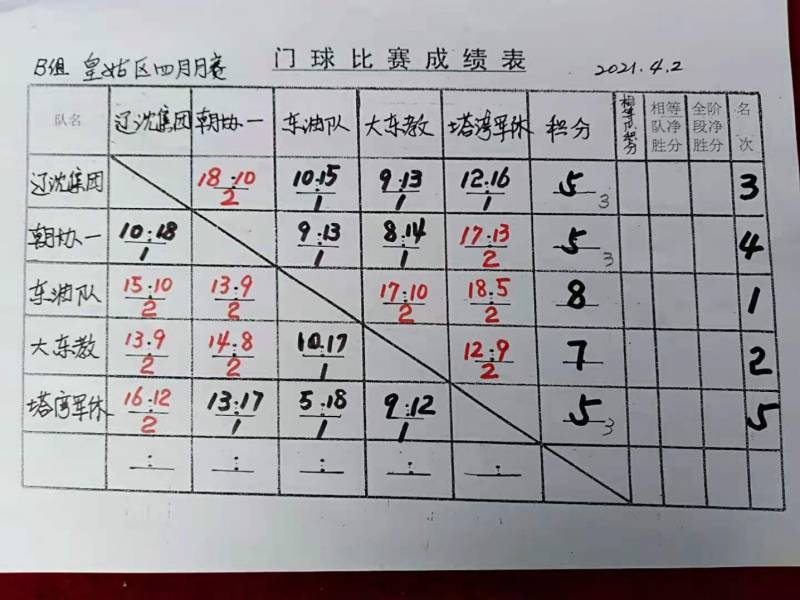 B组 皇姑区四月月赛 门球比赛成绩表 2021.4.2
队名 辽沈集团 朝协一 东油队 大东教 塔湾军休 积分 相等队积分 相等队净胜分 全阶段净胜分 名次
辽沈集团 18:10 10:15 9:13 12:16 5 3 3
2 1 1 1
朝协一 10:18 9:13 8:14 17:13 5 3 4
1 1 1 2
东油队 15:10 13:9 17:10 18:5 8 1
2 2 2 2
大东教 13:9 14:8 10:17 12:9 7 2
2 2 1 2
塔湾军休 16:12 13:17 5:18 9:12 5 3 5
2 1 1 1
: : : : :